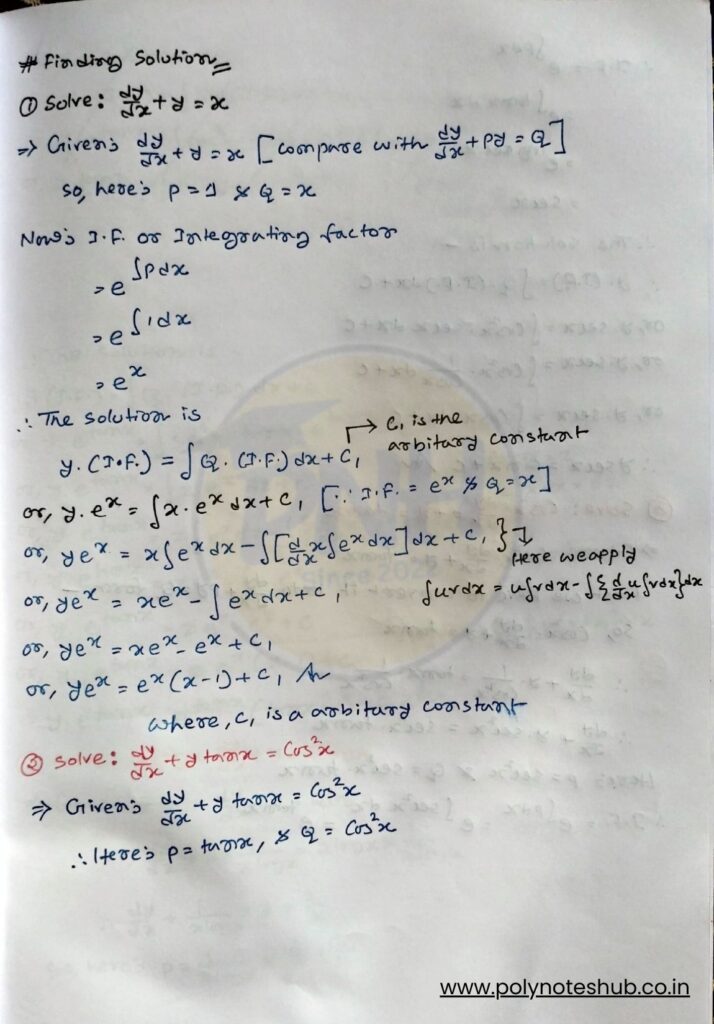 # Finding Solution
① Solve: dy/dx + y = x
⇒ Given: dy/dx + y = x [compare with dy/dx + py = Q]
so, here's p = 1 & Q = x
Now: I.F. or Integrating factor
= e^∫pdx
= e^∫1dx
= e^x
∴ The solution is
y.(I.F.) = ∫Q.(I.F.)dx + C₁ → C₁ is the arbitary constant
or, y.e^x = ∫x.e^x dx + C₁ [∵ I.F. = e^x & Q = x]
or, ye^x = x∫e^x dx - ∫[d/dx x∫e^x dx]dx + C₁ }
Here we apply
∫uvdx = u∫vdx - ∫{d/dx u∫vdx}dx
or, ye^x = xe^x - ∫e^x dx + C₁
or, ye^x = xe^x - e^x + C₁
or, ye^x = e^x(x-1) + C₁ An
where, C₁ is a arbitary constant
② Solve: dy/dx + y tanx = Cos²x
⇒ Given: dy/dx + y tanx = Cos²x
∴ Here's p = tanx, & Q = Cos²x
PNH
since 202
www.polynoteshub.co.in